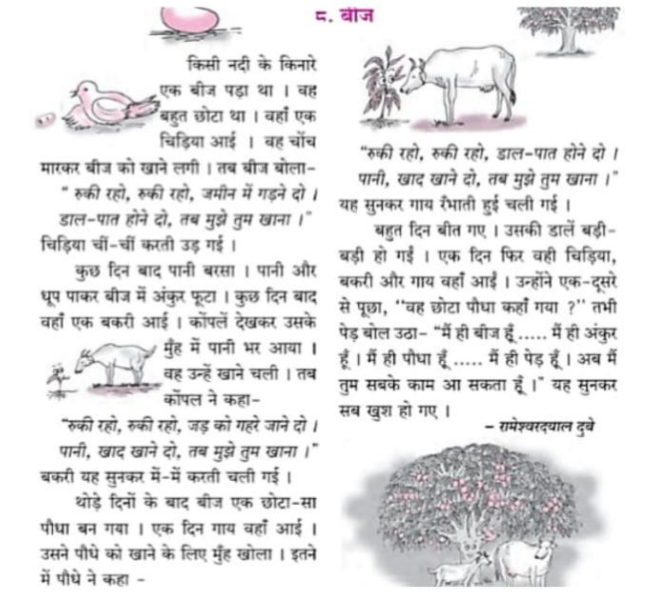 ८. बीज
किसी नदी के किनारे
एक बीज पड़ा था । वह
बहुत छोटा था । वहाँ एक
चिड़िया आई । वह चोंच
मारकर बीज को खाने लगी । तब बीज बोला-
“ रुकी रहो, रुकी रहो, जमीन में गड़ने दो ।
डाल-पात होने दो, तब मुझे तुम खाना ।”
चिड़िया चीं-चीं करती उड़ गई ।
कुछ दिन बाद पानी बरसा । पानी और
धूप पाकर बीज में अंकुर फूटा । कुछ दिन बाद
वहाँ एक बकरी आई । कोंपलें देखकर उसके
मुँह में पानी भर आया ।
वह उन्हें खाने चली । तब
कोंपल ने कहा-
“रुकी रहो, रुकी रहो, जड़ को गहरे जाने दो ।
पानी, खाद खाने दो, तब मुझे तुम खाना ।”
बकरी यह सुनकर में-में करती चली गई ।
थोड़े दिनों के बाद बीज एक छोटा-सा
पौधा बन गया । एक दिन गाय वहाँ आई ।
उसने पौधे को खाने के लिए मुँह खोला । इतने
में पौधे ने कहा -
“रुकी रहो, रुकी रहो, डाल-पात होने दो ।
पानी, खाद खाने दो, तब मुझे तुम खाना ।”
यह सुनकर गाय रँभाती हुई चली गई ।
बहुत दिन बीत गए । उसकी डालें बड़ी-
बड़ी हो गईं । एक दिन फिर वही चिड़िया,
बकरी और गाय वहाँ आईं । उन्होंने एक-दूसरे
से पूछा, “वह छोटा पौधा कहाँ गया ?” तभी
पेड़ बोल उठा- “मैं ही बीज हूँ ..... मैं ही अंकुर
हूँ । मैं ही पौधा हूँ ..... मैं ही पेड़ हूँ । अब मैं
तुम सबके काम आ सकता हूँ ।” यह सुनकर
सब खुश हो गए ।
- रामेश्वरदयाल दुबे